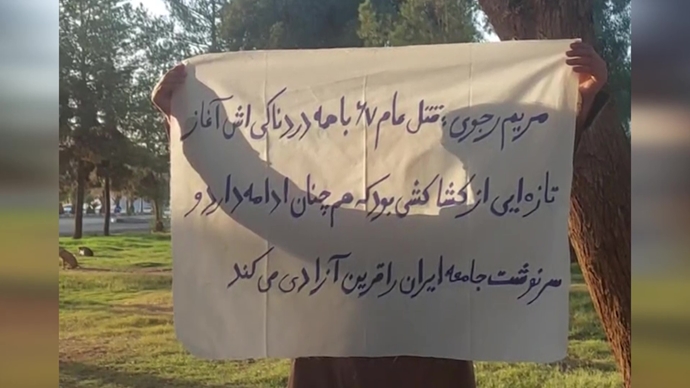 مریم رجوی: قتل عام ۶۷ با همه دردناکی اش آغاز
تازه‌ایی از کشاکشی بود که هم چنان ادامه دارد و
سرنوشت جامعه ایران را قرین آزادی می کند